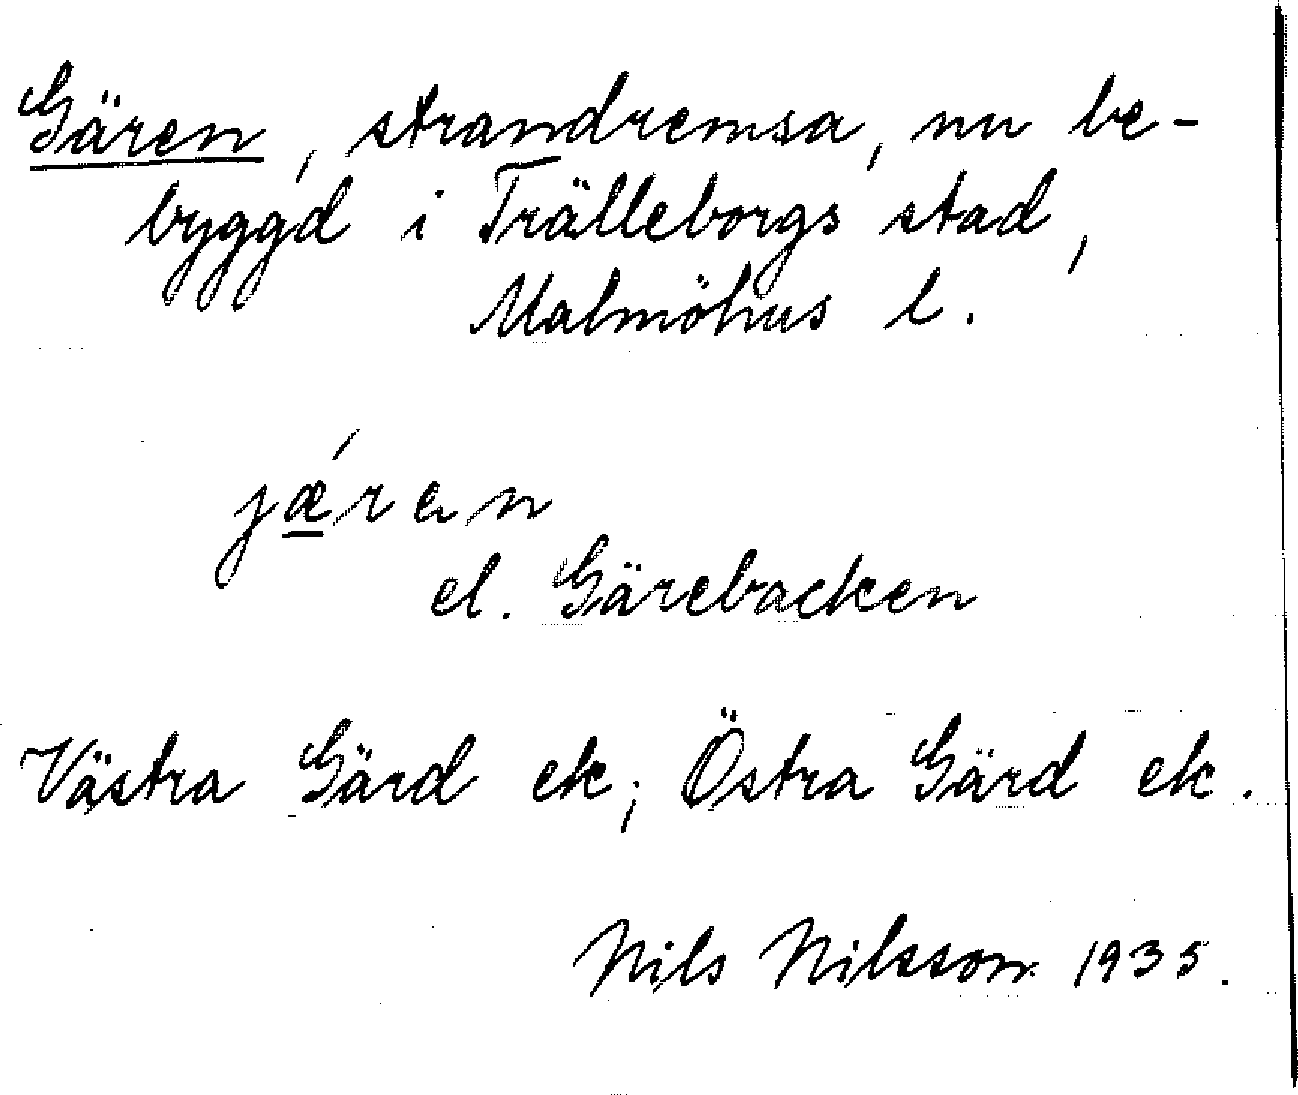 Gären, strandremsa, nu be-
byggd i Trälleborgs stad,
Malmöhus l.
jǽran
el. Gärebacken
Västra Gärd ek; Östra Gärd ek.
Nils Nilsson 1935.